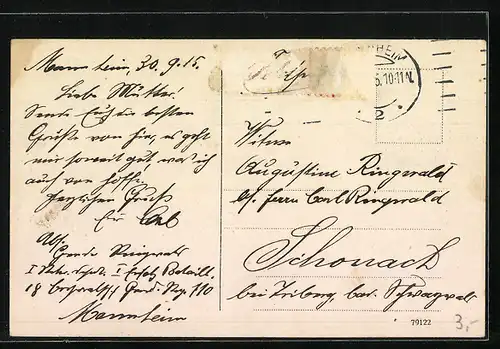 Mannheim, 30.9.15.
Liebe Mutter!
Sende Euch die besten
Grüße von hier, es geht
mir soweit gut was ich
auch von hoffe.
Herzlichen Gruß
Eur
Abs.
Ringwald
I. I. Ersatz Bataill.
18 Gren. Rg. 110
Mannheim
Feldp
HEIM
10-11 N.
2
Witwe
Augustine Ringwald
b/. Herrn Carl Ringwald
Schonach
bei Triberg, bad. Schwarzwald
79122
3,-